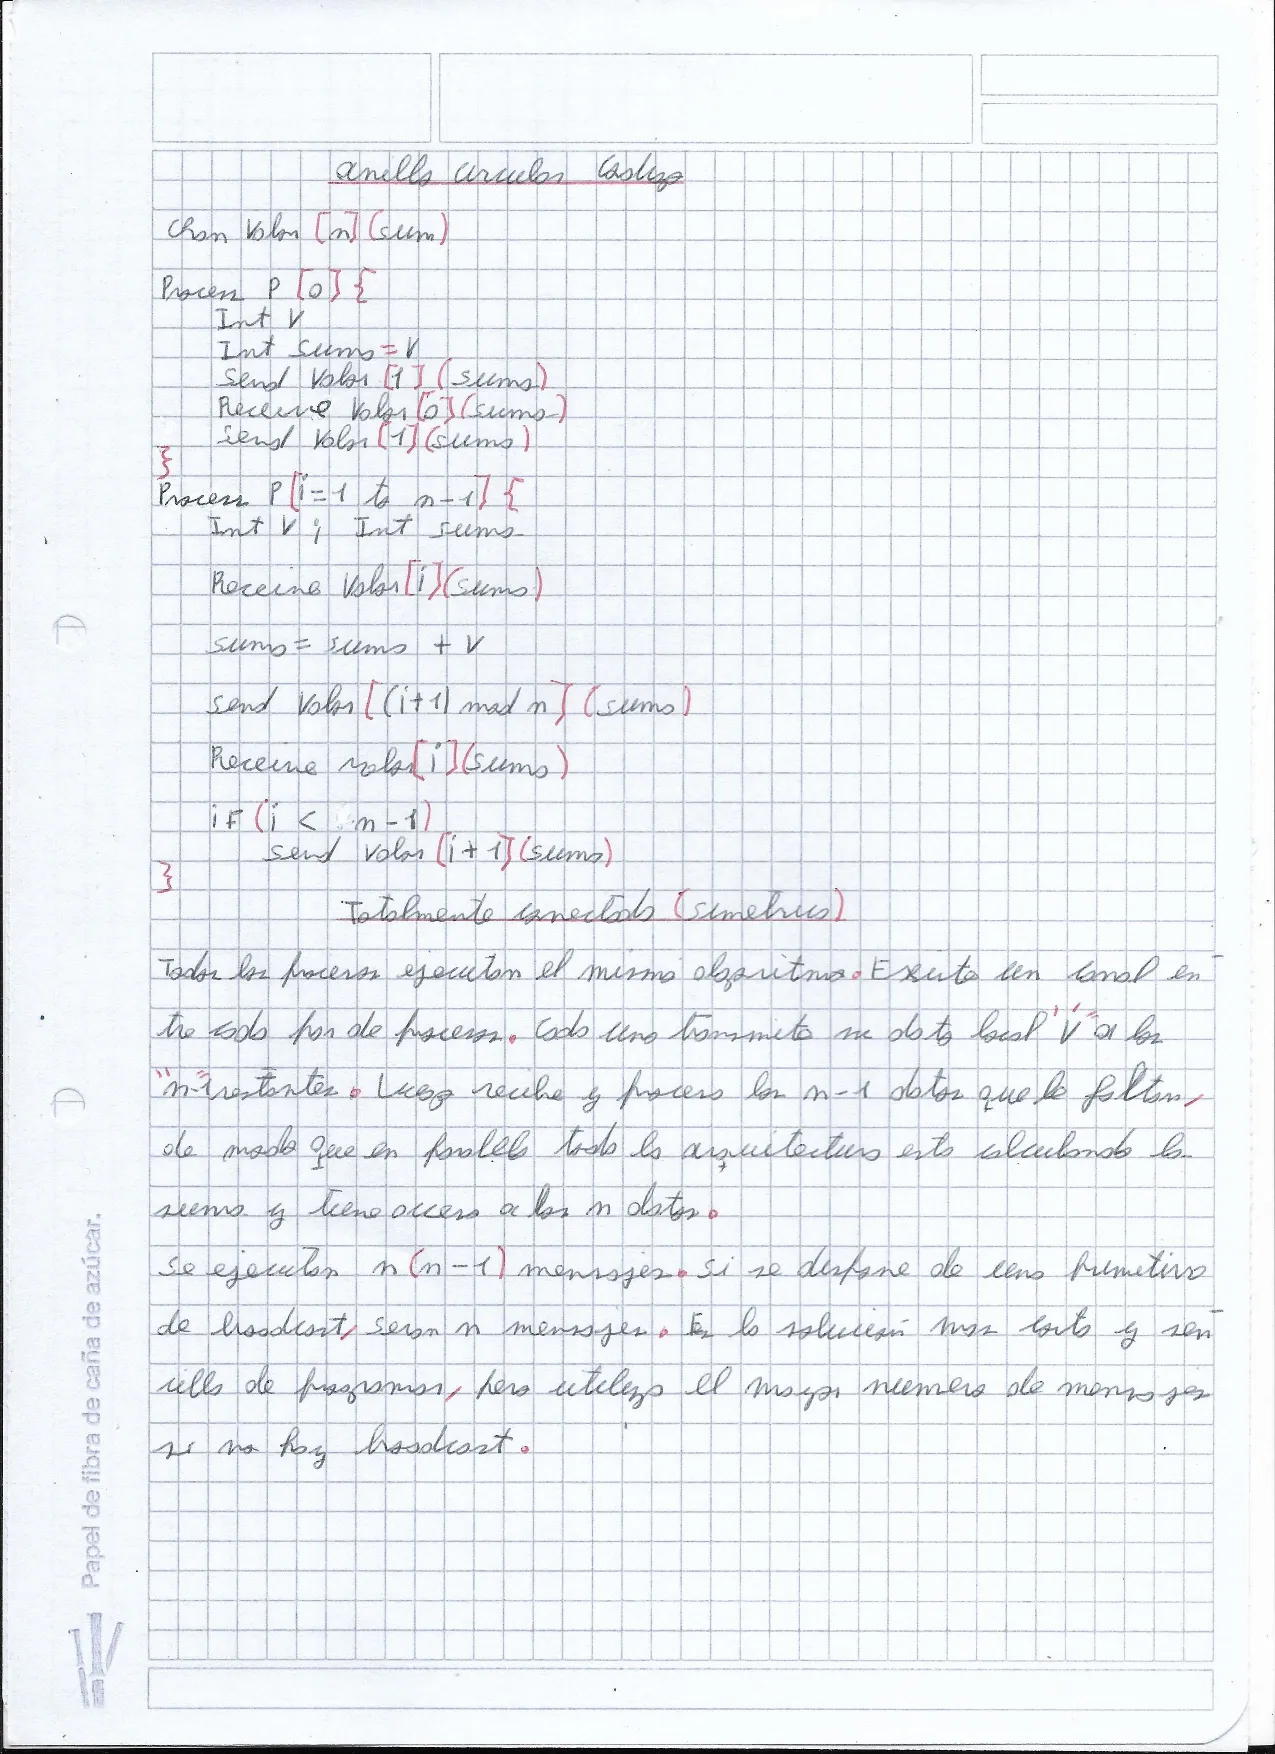 Anillo circular codigo
Chan Valor [n] (sum)
Process P [0] {
Int V
Int suma = V
Send Valor [1] (suma)
Receive Valor [0] (suma)
Send Valor [1] (suma)
}
Process P [i=1 to n-1] {
Int V ; Int suma
Receive Valor [i] (suma)
suma = suma + V
send Valor [(i+1) mod n] (suma)
Receive valor [i] (suma)
iF (i < n-1)
send valor [i+1] (suma)
}
Totalmente conectado (simetrico)
Todos los procesos ejecutan el mismo algoritmo. Existe un canal en-
tre cada par de procesos. Cada uno transmite su dato local "V" a los
"n-1" restantes. Luego recibe y procesa los n-1 datos que le faltan,
de modo que en paralelo toda la arquitectura esta calculando la
suma y tiene acceso a los n datos.
Se ejecutan n(n-1) mensajes. Si se dispone de una primitiva
de broadcast, seran n mensajes. Es la solución mas corta y sen-
cilla de programar, pero utiliza el mayor numero de mensajes
si no hay broadcast.
Papel de fibra de caña de azúcar.